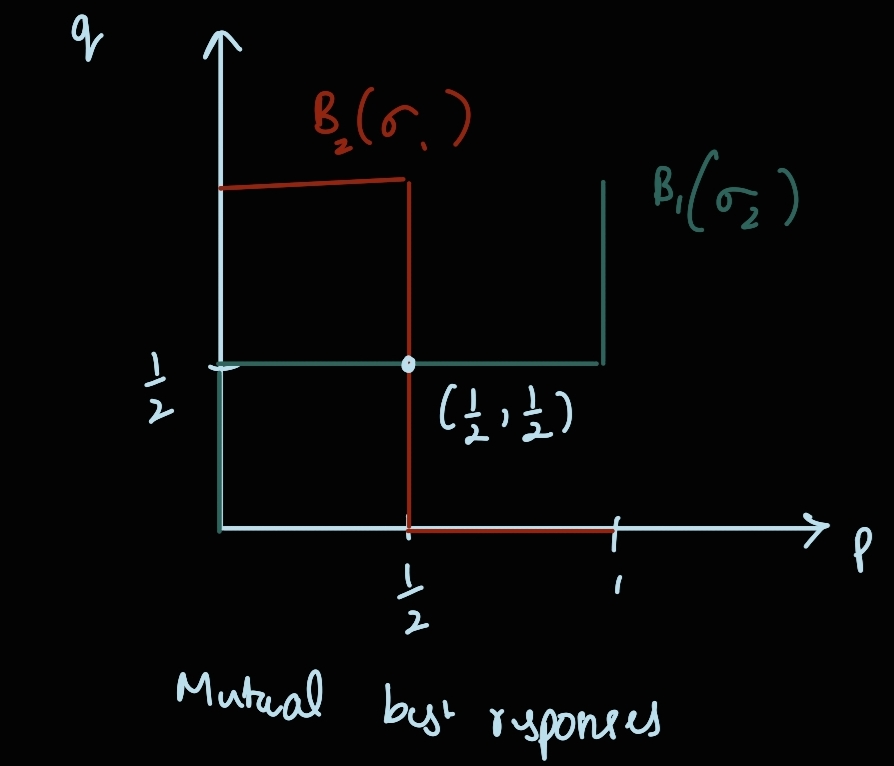 q
B₂(σ₁)
B₁(σ₂)
1/2
(1/2, 1/2)
p
1/2
1
Mutual best responses